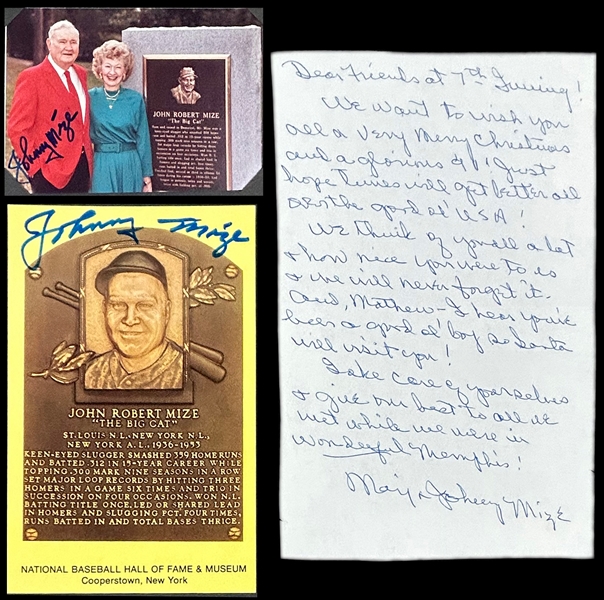 Johnny Mize
JOHN ROBERT MIZE
"The Big Cat"
Johnny Mize
JOHN ROBERT MIZE
"THE BIG CAT"
ST. LOUIS N.L., NEW YORK N.L.,
NEW YORK A.L., 1936-1953
KEEN-EYED SLUGGER SMASHED 359 HOME RUNS
AND BATTED .312 IN 15-YEAR CAREER WHILE
TOPPING .300 MARK NINE SEASONS IN A ROW.
SET MAJOR LOOP RECORDS BY HITTING THREE
HOMERS IN A GAME SIX TIMES AND TRIO IN
SUCCESSION ON FOUR OCCASIONS. WON N.L.
BATTING TITLE ONCE, LED OR SHARED LEAD
IN HOMERS AND SLUGGING PCT. FOUR TIMES,
RUNS BATTED IN AND TOTAL BASES THRICE.
NATIONAL BASEBALL HALL OF FAME & MUSEUM
Cooperstown, New York
Dear Friends at 7th Inning!
We want to wish you
all a Very Merry Christmas
and a glorious & I just
hope times will get better all
over the good ol' USA!
We think of you all a lot
& how nice you were to us
& we will never forget it.
And, Mathew - I hear you've
been a good ol' boy so Santa
will visit you!
Take care of yourselves
& give our best to all we
met while we were in
Wonderful Memphis!
Marj & Johnny Mize